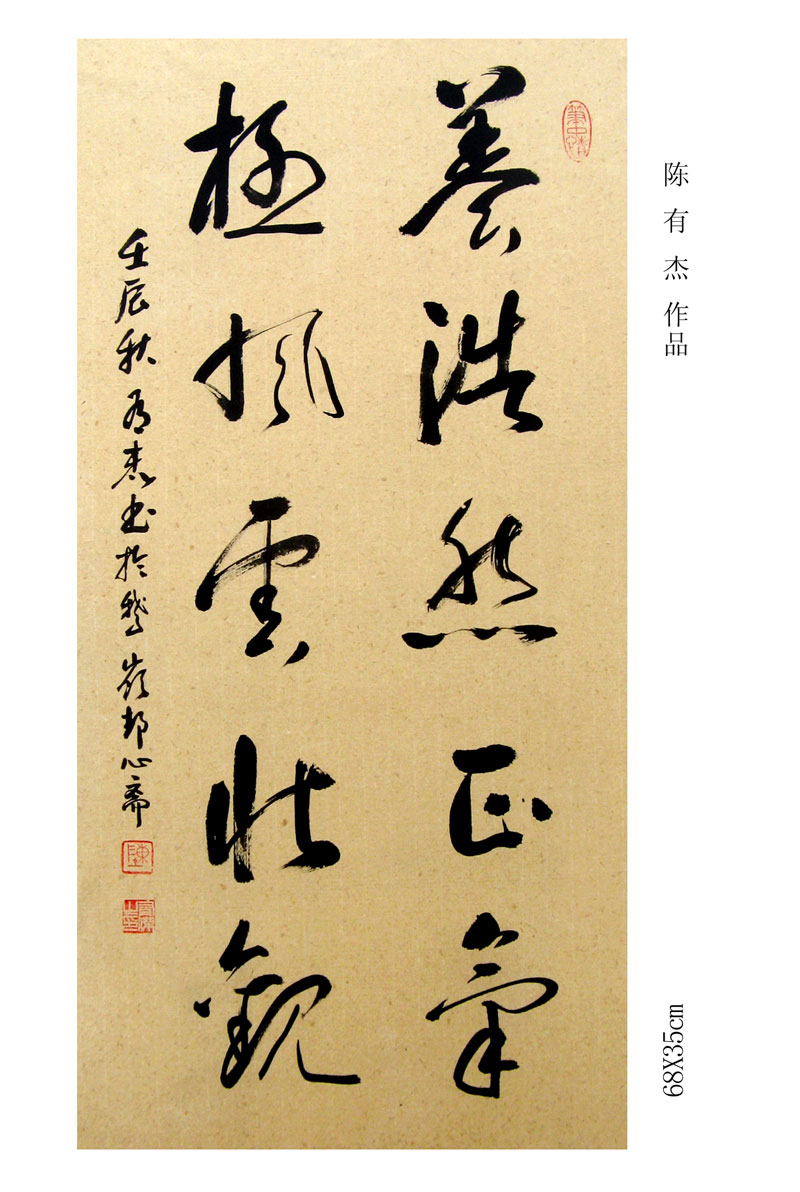 養浩然正氣
極風雲壯觀
壬辰秋有杰书於鹅岭邨心斋
陈有杰作品
68X35cm